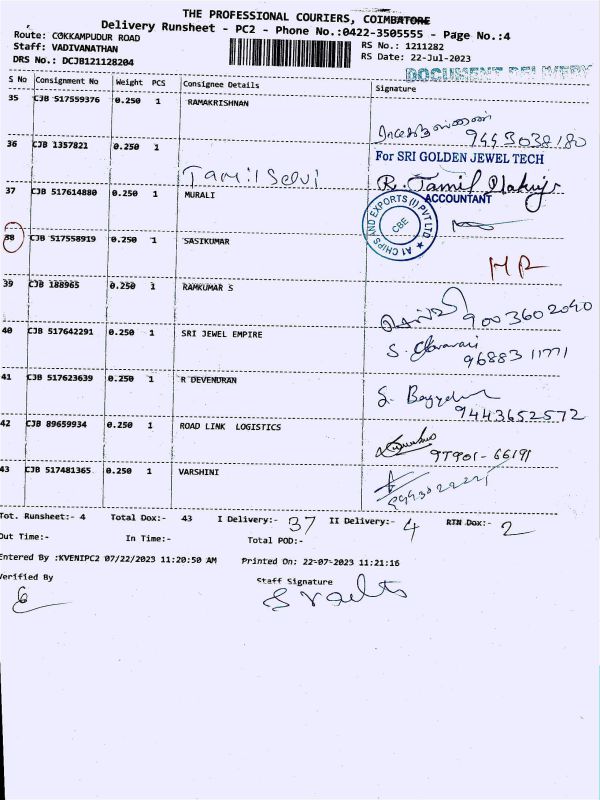 THE PROFESSIONAL COURIERS, COIMBATORE
Delivery Runsheet - PC2 - Phone No.:0422-3505555 - Page No.:4
Route: COKKAMPUDUR ROAD
RS No.: 1211282
Staff: VADIVANATHAN
RS Date: 22-Jul-2023
DRS No.: DCJB121128204
DOCUMENT DELIVERY
S No Consignment No Weight PCS Consignee Details Signature
35 CJB 517559376 0.250 1 RAMAKRISHNAN
9443038180
36 CJB 1357821 0.250 1
For SRI GOLDEN JEWEL TECH
Tamil Selvi
R. Tamil
37 CJB 517614880 0.250 1 MURALI
ACCOUNTANT
A1 CHIPS AND EXPORTS (I) PVT LTD
CBE
38 CJB 517558919 0.250 1 SASIKUMAR
MR
39 CJB 188965 0.250 1 RAMKUMAR S
9003602040
40 CJB 517642291 0.250 1 SRI JEWEL EMPIRE
S.
96883 11771
41 CJB 517623639 0.250 1 R DEVENDRAN
9443652572
42 CJB 89659934 0.250 1 ROAD LINK LOGISTICS
97901-66191
43 CJB 517481365 0.250 1 VARSHINI
Tot. Runsheet:- 4 Total Dox:- 43 I Delivery:- 37 II Delivery:- 4 RTN Dox:- 2
Out Time:- In Time:- Total POD:-
Entered By :KVENIPC2 07/22/2023 11:20:50 AM Printed On: 22-07-2023 11:21:16
Verified By Staff Signature